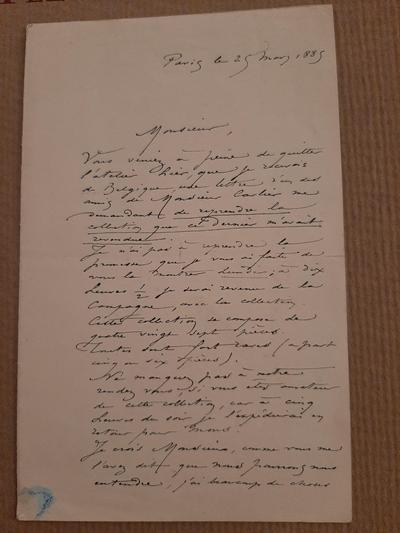 Paris le 25 Mars 1885
Monsieur,
Vous veniez à peine de quitter
l'atelier hier, que je recevais
de Belgique, une lettre d'un des
amis de Monsieur Cartier me
demandant de reprendre la
collection que ce dernier m'avait
revendue.
Je n'ai pas à reprendre la
promesse que je vous ai faite de
vous la montrer lundi; à dix
heures ½ je serai revenu de la
Campagne, avec la collection.
Cette collection se compose de
quatre vingt sept pièces.
Toutes sont fort rares (à part
cinq ou six pièces).
Ne manquez pas à notre
rendez vous, si vous êtes amateur
de cette collection, car à cinq
heures du soir je l'expédierai en
retour pour Mons.
Je crois Monsieur, comme vous me
l'avez dit que nous pourrons nous
entendre, j'ai beaucoup de choses